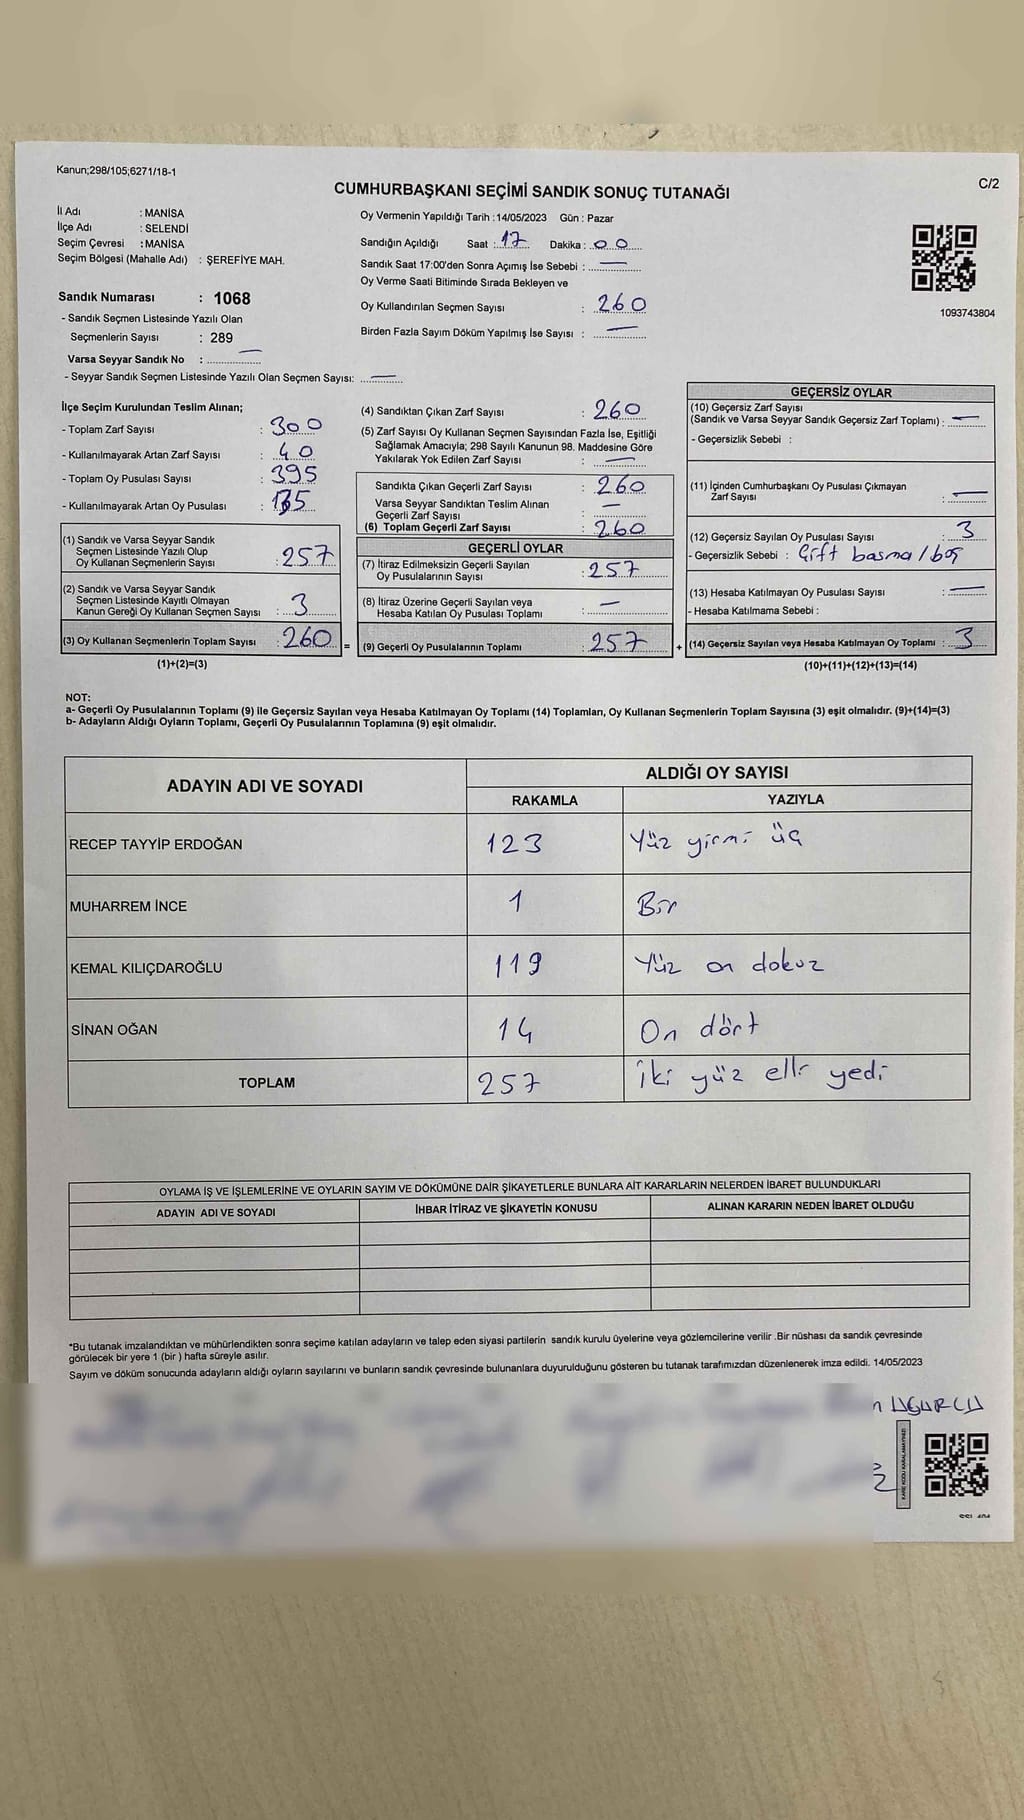 Kanun;298/105;6271/18-1
CUMHURBAŞKANI SEÇİMİ SANDIK SONUÇ TUTANAĞI
C/2
İl Adı : MANİSA
İlçe Adı : SELENDİ
Seçim Çevresi : MANİSA
Seçim Bölgesi (Mahalle Adı) : ŞEREFİYE MAH.
Sandık Numarası : 1068
- Sandık Seçmen Listesinde Yazılı Olan
Seçmenlerin Sayısı : 289
Varsa Seyyar Sandık No : —
- Seyyar Sandık Seçmen Listesinde Yazılı Olan Seçmen Sayısı: —
Oy Vermenin Yapıldığı Tarih :14/05/2023 Gün : Pazar
Sandığın Açıldığı Saat : 17 Dakika : 00
Sandık Saat 17:00'den Sonra Açımış İse Sebebi : —
Oy Verme Saati Bitiminde Sırada Bekleyen ve
Oy Kullandırılan Seçmen Sayısı : 260
Birden Fazla Sayım Döküm Yapılmış İse Sayısı : —
1093743804
İlçe Seçim Kurulundan Teslim Alınan;
- Toplam Zarf Sayısı : 300
- Kullanılmayarak Artan Zarf Sayısı : 40
- Toplam Oy Pusulası Sayısı : 395
- Kullanılmayarak Artan Oy Pusulası : 135
(1) Sandık ve Varsa Seyyar Sandık
Seçmen Listesinde Yazılı Olup
Oy Kullanan Seçmenlerin Sayısı : 257
(2) Sandık ve Varsa Seyyar Sandık
Seçmen Listesinde Kayıtlı Olmayan
Kanun Gereği Oy Kullanan Seçmen Sayısı : 3
(3) Oy Kullanan Seçmenlerin Toplam Sayısı : 260 =
(1)+(2)=(3)
(4) Sandıktan Çıkan Zarf Sayısı : 260
(5) Zarf Sayısı Oy Kullanan Seçmen Sayısından Fazla İse, Eşitliği
Sağlamak Amacıyla; 298 Sayılı Kanunun 98. Maddesine Göre
Yakılarak Yok Edilen Zarf Sayısı : —
Sandıkta Çıkan Geçerli Zarf Sayısı : 260
Varsa Seyyar Sandıktan Teslim Alınan
Geçerli Zarf Sayısı : —
(6) Toplam Geçerli Zarf Sayısı : 260
GEÇERLİ OYLAR
(7) İtiraz Edilmeksizin Geçerli Sayılan
Oy Pusulalarının Sayısı : 257
(8) İtiraz Üzerine Geçerli Sayılan veya
Hesaba Katılan Oy Pusulası Toplamı : —
(9) Geçerli Oy Pusulalarının Toplamı : 257 +
GEÇERSİZ OYLAR
(10) Geçersiz Zarf Sayısı
(Sandık ve Varsa Seyyar Sandık Geçersiz Zarf Toplamı) : —
- Geçersizlik Sebebi :
(11) İçinden Cumhurbaşkanı Oy Pusulası Çıkmayan
Zarf Sayısı : —
(12) Geçersiz Sayılan Oy Pusulası Sayısı : 3
- Geçersizlik Sebebi : Çift basma/boş
(13) Hesaba Katılmayan Oy Pusulası Sayısı : —
- Hesaba Katılmama Sebebi :
(14) Geçersiz Sayılan veya Hesaba Katılmayan Oy Toplamı : 3
(10)+(11)+(12)+(13)=(14)
NOT:
a- Geçerli Oy Pusulalarının Toplamı (9) ile Geçersiz Sayılan veya Hesaba Katılmayan Oy Toplamı (14) Toplamları, Oy Kullanan Seçmenlerin Toplam Sayısına (3) eşit olmalıdır. (9)+(14)=(3)
b- Adayların Aldığı Oyların Toplamı, Geçerli Oy Pusulalarının Toplamına (9) eşit olmalıdır.
ADAYIN ADI VE SOYADI
ALDIĞI OY SAYISI
RAKAMLA YAZIYLA
RECEP TAYYİP ERDOĞAN 123 Yüz yirmi üç
MUHARREM İNCE 1 Bir
KEMAL KILIÇDAROĞLU 119 Yüz on dokuz
SİNAN OĞAN 14 On dört
TOPLAM 257 İki yüz elli yedi
OYLAMA İŞ VE İŞLEMLERİNE VE OYLARIN SAYIM VE DÖKÜMÜNE DAİR ŞİKAYETLERLE BUNLARA AİT KARARLARIN NELERDEN İBARET BULUNDUKLARI
ADAYIN ADI VE SOYADI İHBAR İTİRAZ VE ŞİKAYETİN KONUSU ALINAN KARARIN NEDEN İBARET OLDUĞU
*Bu tutanak imzalandıktan ve mühürlendikten sonra seçime katılan adayların ve talep eden siyasi partilerin sandık kurulu üyelerine veya gözlemcilerine verilir .Bir nüshası da sandık çevresinde
görülecek bir yere 1 (bir ) hafta süreyle asılır.
Sayım ve döküm sonucunda adayların aldığı oyların sayılarını ve bunların sandık çevresinde bulunanlara duyurulduğunu gösteren bu tutanak tarafımızdan düzenlenerek imza edildi. 14/05/2023
KARE KODU KARALAMAYINIZ!